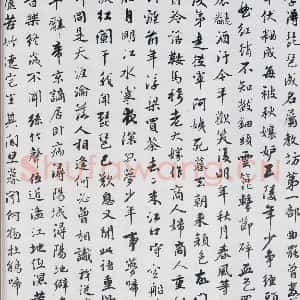 琶成名屬教坊第一部曲罷
伏妝成每被秋娘妒五陵年少爭纏
曲紅綃不知數鈿頭雲篦擊節碎
翻酒汙今年歡笑復明年秋月春風等
弟走從軍阿姨死暮去朝來顏色故
冷落鞍馬稀老大嫁作商人婦商人重
離前年浮梁買茶去去來江口守空船
月明江水寒夜深忽夢少年事夢啼
紅闌干我聞琵琶已歎息又聞此
同是天涯淪落人相逢何必曾相識我從
年辭帝京謫居卧病潯陽城潯陽地僻
音樂終歲不聞絲竹聲住近湓江地低濕
苦竹繞宅生其間旦暮聞何物杜鵑啼
Shufawang.cn